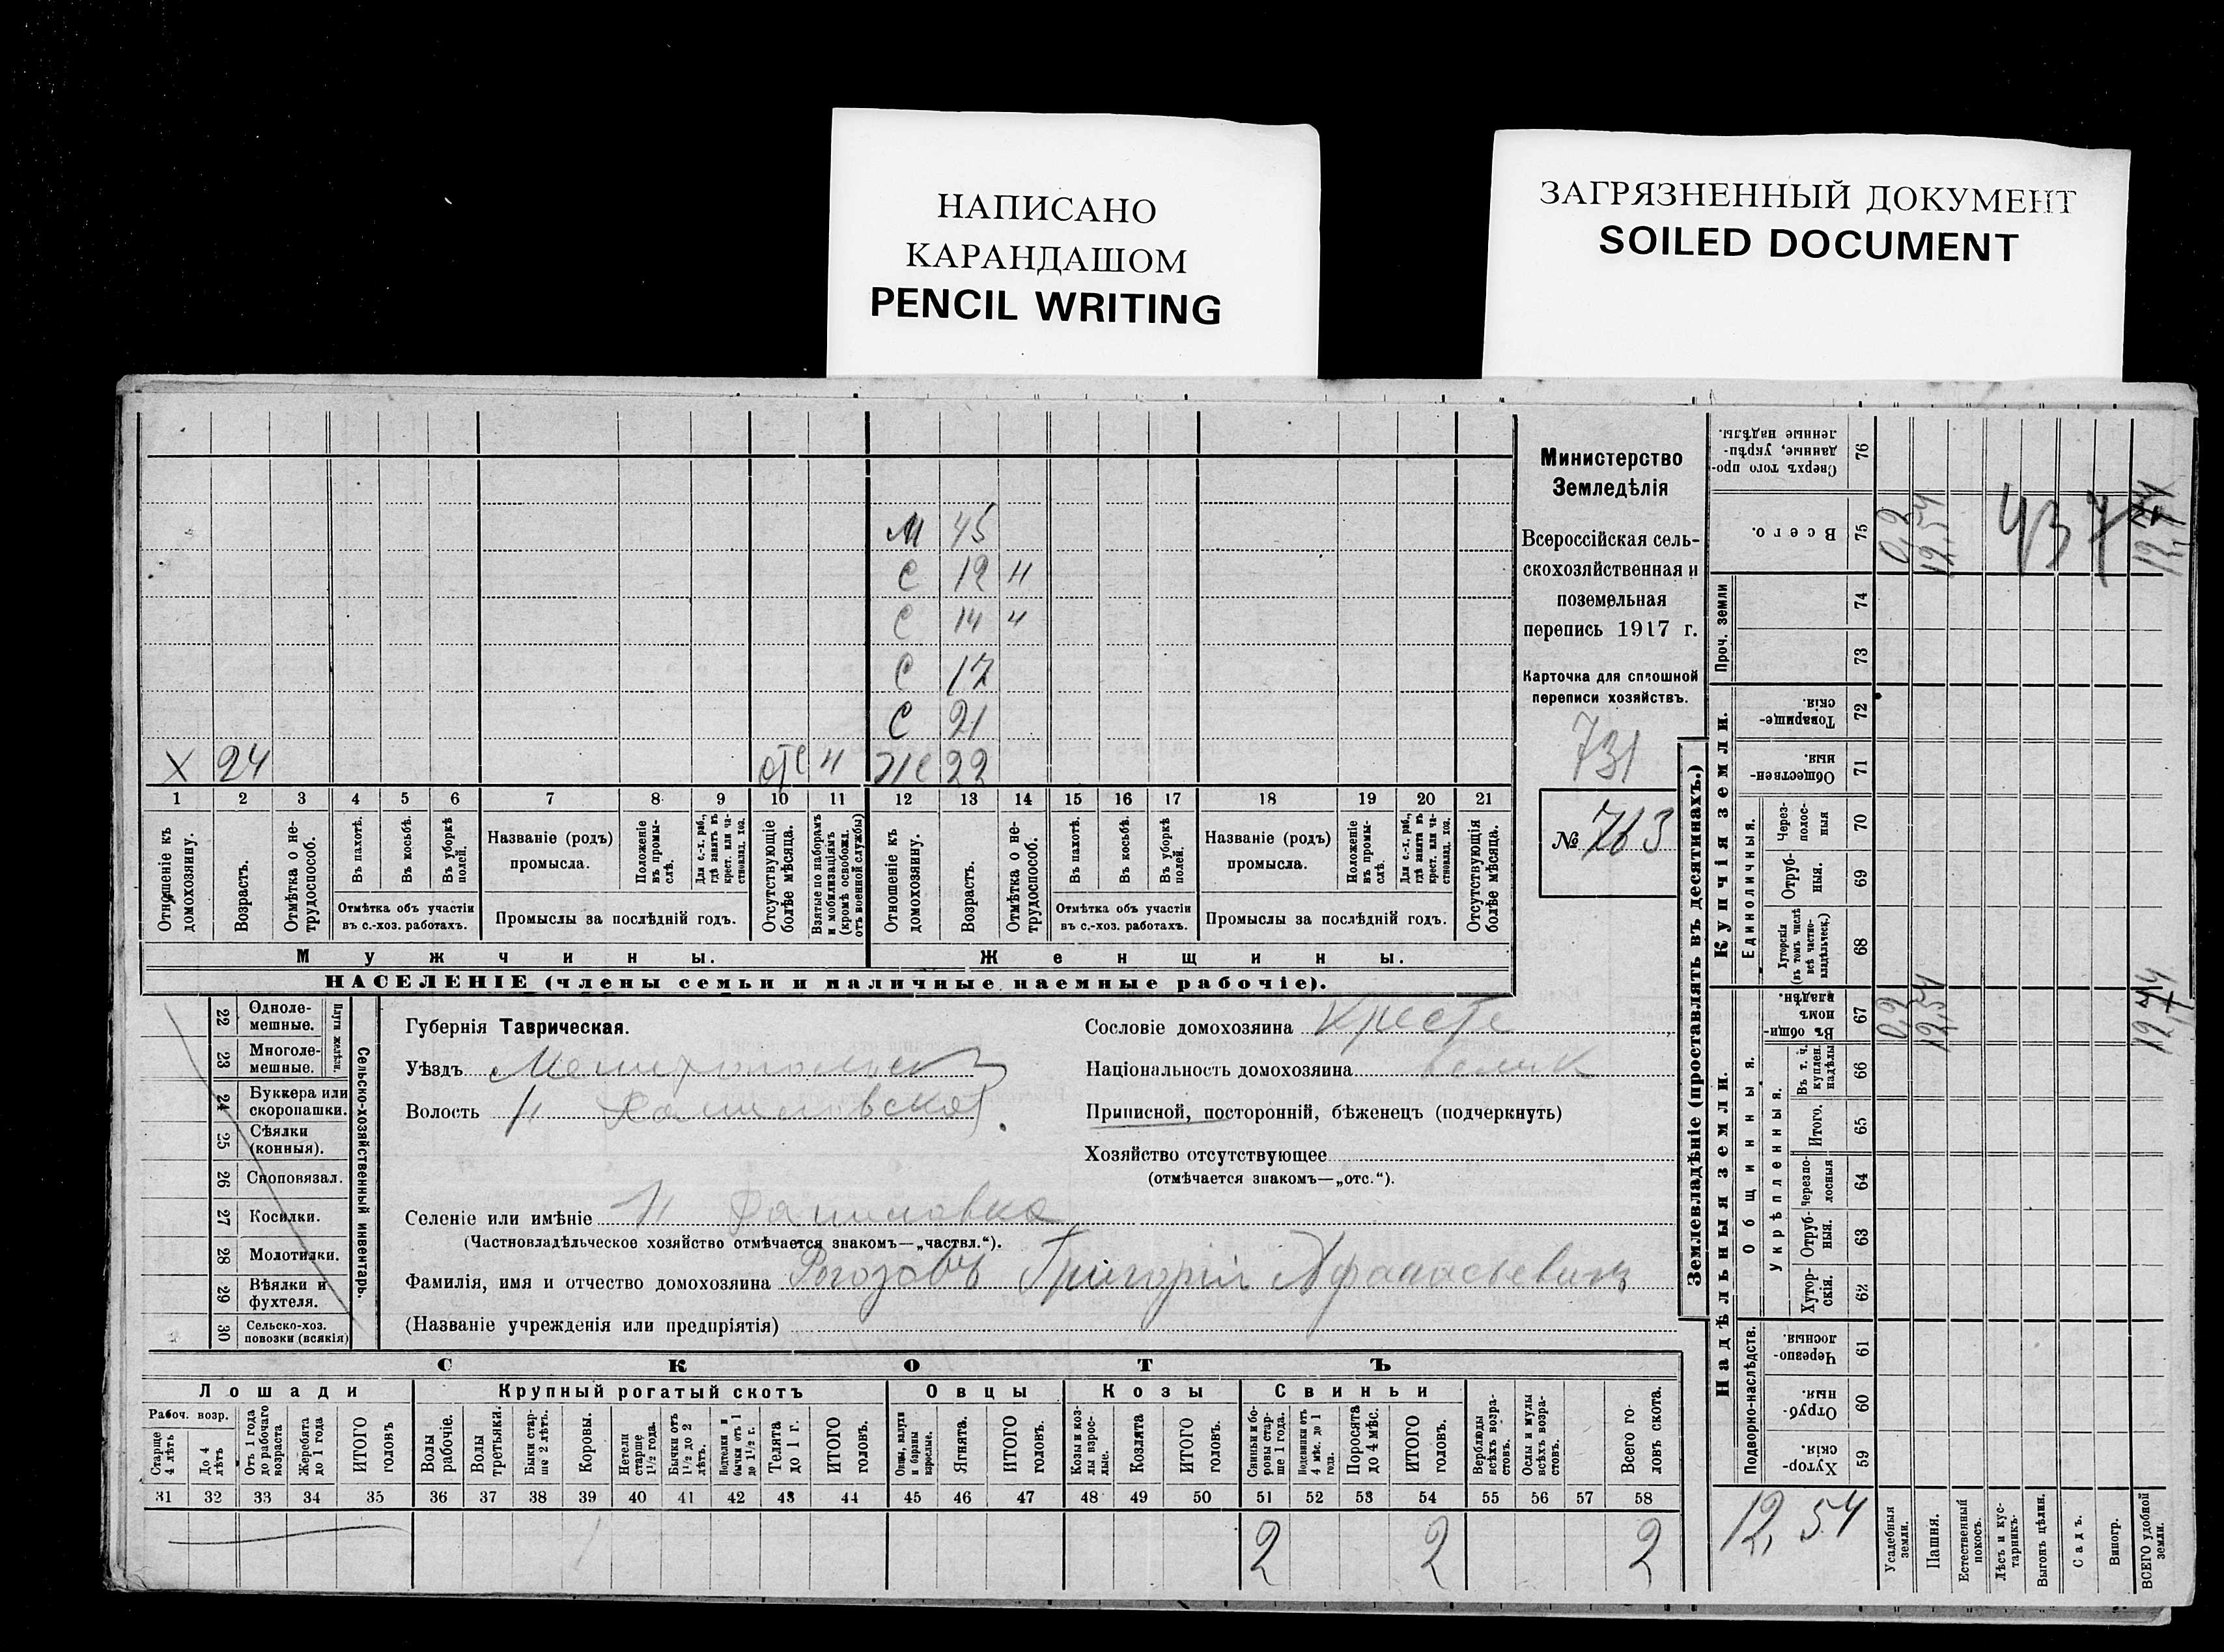 НАПИСАНО
КАРАНДАШОМ
PENCIL WRITING
ЗАГРЯЗНЕННЫЙ ДОКУМЕНТ
SOILED DOCUMENT
М 45
С 12 Н
С 14 Н
С 17
С 21
Х 24 отс Н Же 22
1 2 3 4 5 6 7 8 9 10 11 12 13 14 15 16 17 18 19 20 21
Отношеніе къ домохозяину.
Возрастъ.
Отмѣтка о нетрудоспособ.
Въ пахотѣ.
Въ косьбѣ.
Въ уборкѣ полей.
Отмѣтка объ участіи
въ с.-хоз. работахъ.
Названіе (родъ)
промысла.
Положеніе въ промыслѣ.
Для с.-х. раб., гдѣ занятъ въ крест. или частновлад. хоз.
Промыслы за послѣдній годъ.
Отсутствующіе болѣе мѣсяца.
Взятые по наборамъ и мобилизаціямъ (кромѣ освобожд. отъ военной службы)
Отношеніе къ домохозяину.
Возрастъ.
Отмѣтка о нетрудоспособ.
Въ пахотѣ.
Въ косьбѣ.
Въ уборкѣ полей.
Отмѣтка объ участіи
въ с.-хоз. работахъ.
Названіе (родъ)
промысла.
Положеніе въ промыслѣ.
Для с.-х. раб., гдѣ занята въ крест. или частновлад. хоз.
Промыслы за послѣдній годъ.
Отсутствующія болѣе мѣсяца.
Мужчины.
Женщины.
НАСЕЛЕНІЕ (члены семьи и наличные наемные рабочіе).
Министерство
Земледѣлія
Всероссійская сель-
скохозяйственная и
поземельная
перепись 1917 г.
Карточка для сплошной
переписи хозяйствъ.
731
№ 763
22 Одноле-
мешные.
23 Многоле-
мешные.
Плуги желѣзн.
24 Буккера или
скоропашки.
25 Сѣялки
(конныя).
26 Сноповязал.
27 Косилки.
28 Молотилки.
29 Вѣялки и
фухтеля.
30 Сельско-хоз.
повозки (всякія)
Сельско-хозяйственный инвентарь.
Губернія Таврическая.
Уѣздъ Мелитопольск
Волость Н Даниловской
Селеніе или имѣніе Н Даниловка
(Частновладѣльческое хозяйство отмѣчается знакомъ—„частвл.“).
Фамилія, имя и отчество домохозяина Рогозовъ Григорій Афанасьевичъ
(Названіе учрежденія или предпріятія)
Сословіе домохозяина Крест
Національность домохозяина Велик
Приписной, посторонній, бѣженецъ (подчеркнуть)
Хозяйство отсутствующее
(отмѣчается знакомъ—„отс.“).
СКОТЪ
Лошади
Крупный рогатый скотъ
Овцы
Козы
Свиньи
Рабоч. возр.
Старше 4 лѣтъ
До 4 лѣтъ
Отъ 1 года до рабочаго возраста
Жеребята до 1 года
ИТОГО головъ
Волы рабочіе.
Волы третьяки.
Быки старше 2 лѣтъ.
Коровы.
Нетели старше 1 1/2 года.
Бычки отъ 1 1/2 до 2 лѣтъ.
Подтелки и бычки отъ 1 до 1 1/2 г.
Телята до 1 г.
ИТОГО головъ.
Овцы, валухи и бараны взрослые.
Ягнята.
ИТОГО головъ.
Козы и козлы взрослые.
Козлята
ИТОГО головъ.
Свиньи и боровы старше 1 года.
Подсвинки отъ 4 мѣс. до 1 года.
Поросята до 4 мѣс.
ИТОГО головъ.
Верблюды всѣхъ возрастовъ.
Ослы и мулы всѣхъ возрастовъ.
Всего головъ скота.
31 32 33 34 35 36 37 38 39 40 41 42 43 44 45 46 47 48 49 50 51 52 53 54 55 56 57 58
2 2 2
Землевладѣніе (проставлять въ десятинахъ.)
Купчія земли.
Надѣльныя земли.
Сверхъ того проданные, укрѣпленные надѣлы. 76
Всего. 75
0,2 12,54 437 12,74
Проч. земли
74
73
Товарищескія. 72
Общественныя. 71
Единоличныя.
Черезполосныя 70
Отрубныя. 69
Хуторскія (въ томъ числѣ всѣ частновладѣльческ.) 68
Общинныя.
Въ общинномъ владѣн. 67
0,2 12,54 12,74
Укрѣпленныя.
Въ т. ч. куплен. надѣлы 66
Итого. 65
Черезполосныя 64
Отрубныя. 63
Хуторскія. 62
Подворно-наслѣдств.
Черезполосныя 61
Отрубныя. 60
Хуторскія. 59
12,54
Усадебныя земли.
Пашня.
Естественный покосъ.
Лѣсъ и кустарникъ.
Выгонъ цѣлин.
Садъ.
Виногр.
ВСЕГО удобной земли.